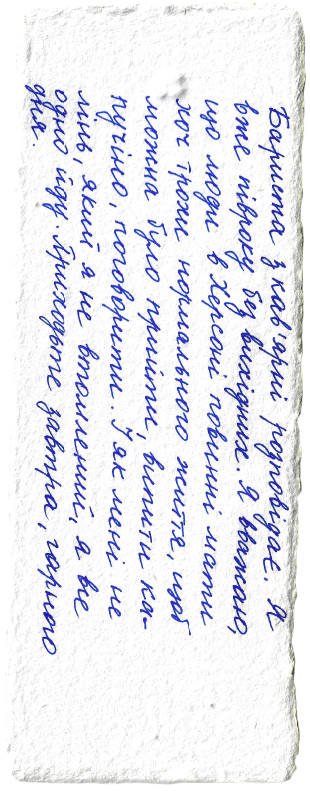 Бариста з кав'ярні розповідає. Я
вже півроку без вихідних. Я вважаю,
що люди в Херсоні повинні мати
хоч трохи нормального життя, щоб
можна було прийти, випити ка-
пучіно, поговорити. І як мені не
мінь, який я не втомлений, я все
одно йду. Приходьте завтра, гарного
дня.